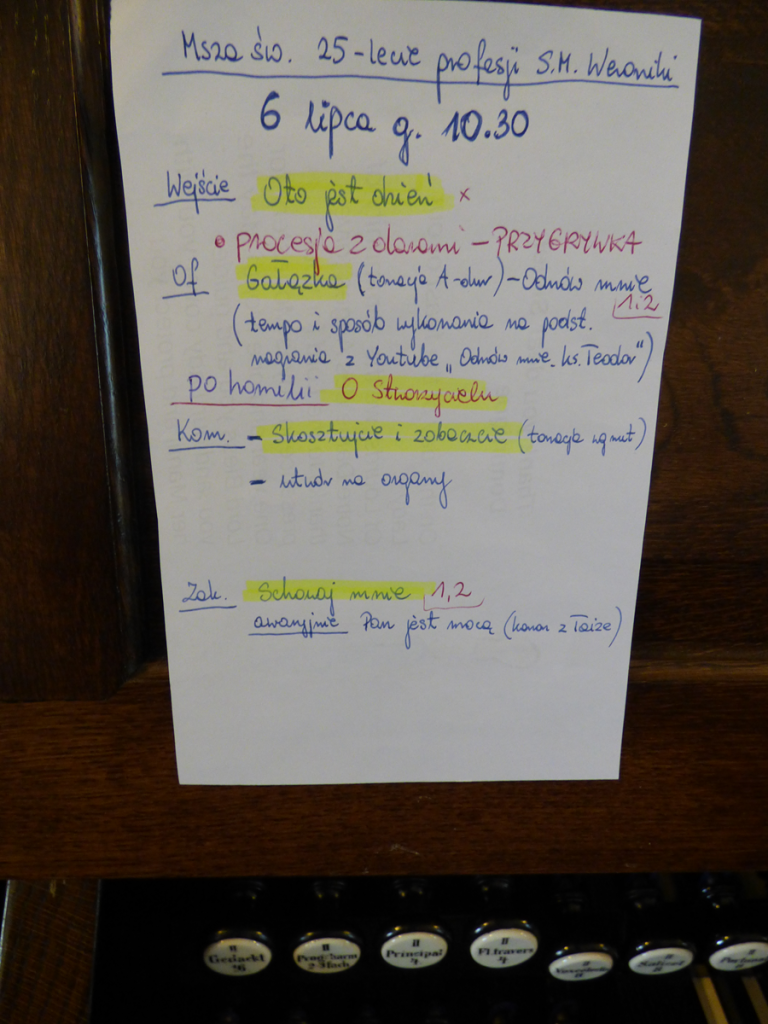 Msza św. 25-lecie profesji S.M. Weroniki
6 lipca g. 10.30
Wejście Oto jest dzień x
• procesja z darami – PRZYGRYWKA
Of Gałązka (tonacja A-dur) – Odnów mnie
1i2
(tempo i sposób wykonania na podst.
nagrania z Youtube „Odnów mnie. ks. Teodor")
po homilii O Stworzycielu
Kom. – Skosztujcie i zobaczcie (tonacja wg nut)
– utwór na organy
Zak. Schowaj mnie 1,2
awaryjnie Pan jest mocą (kanon z Taize)
II
Gedackt
16
II
Progr. Harm
2-3 fach
II
Principal
4
II
Fl. travers
4